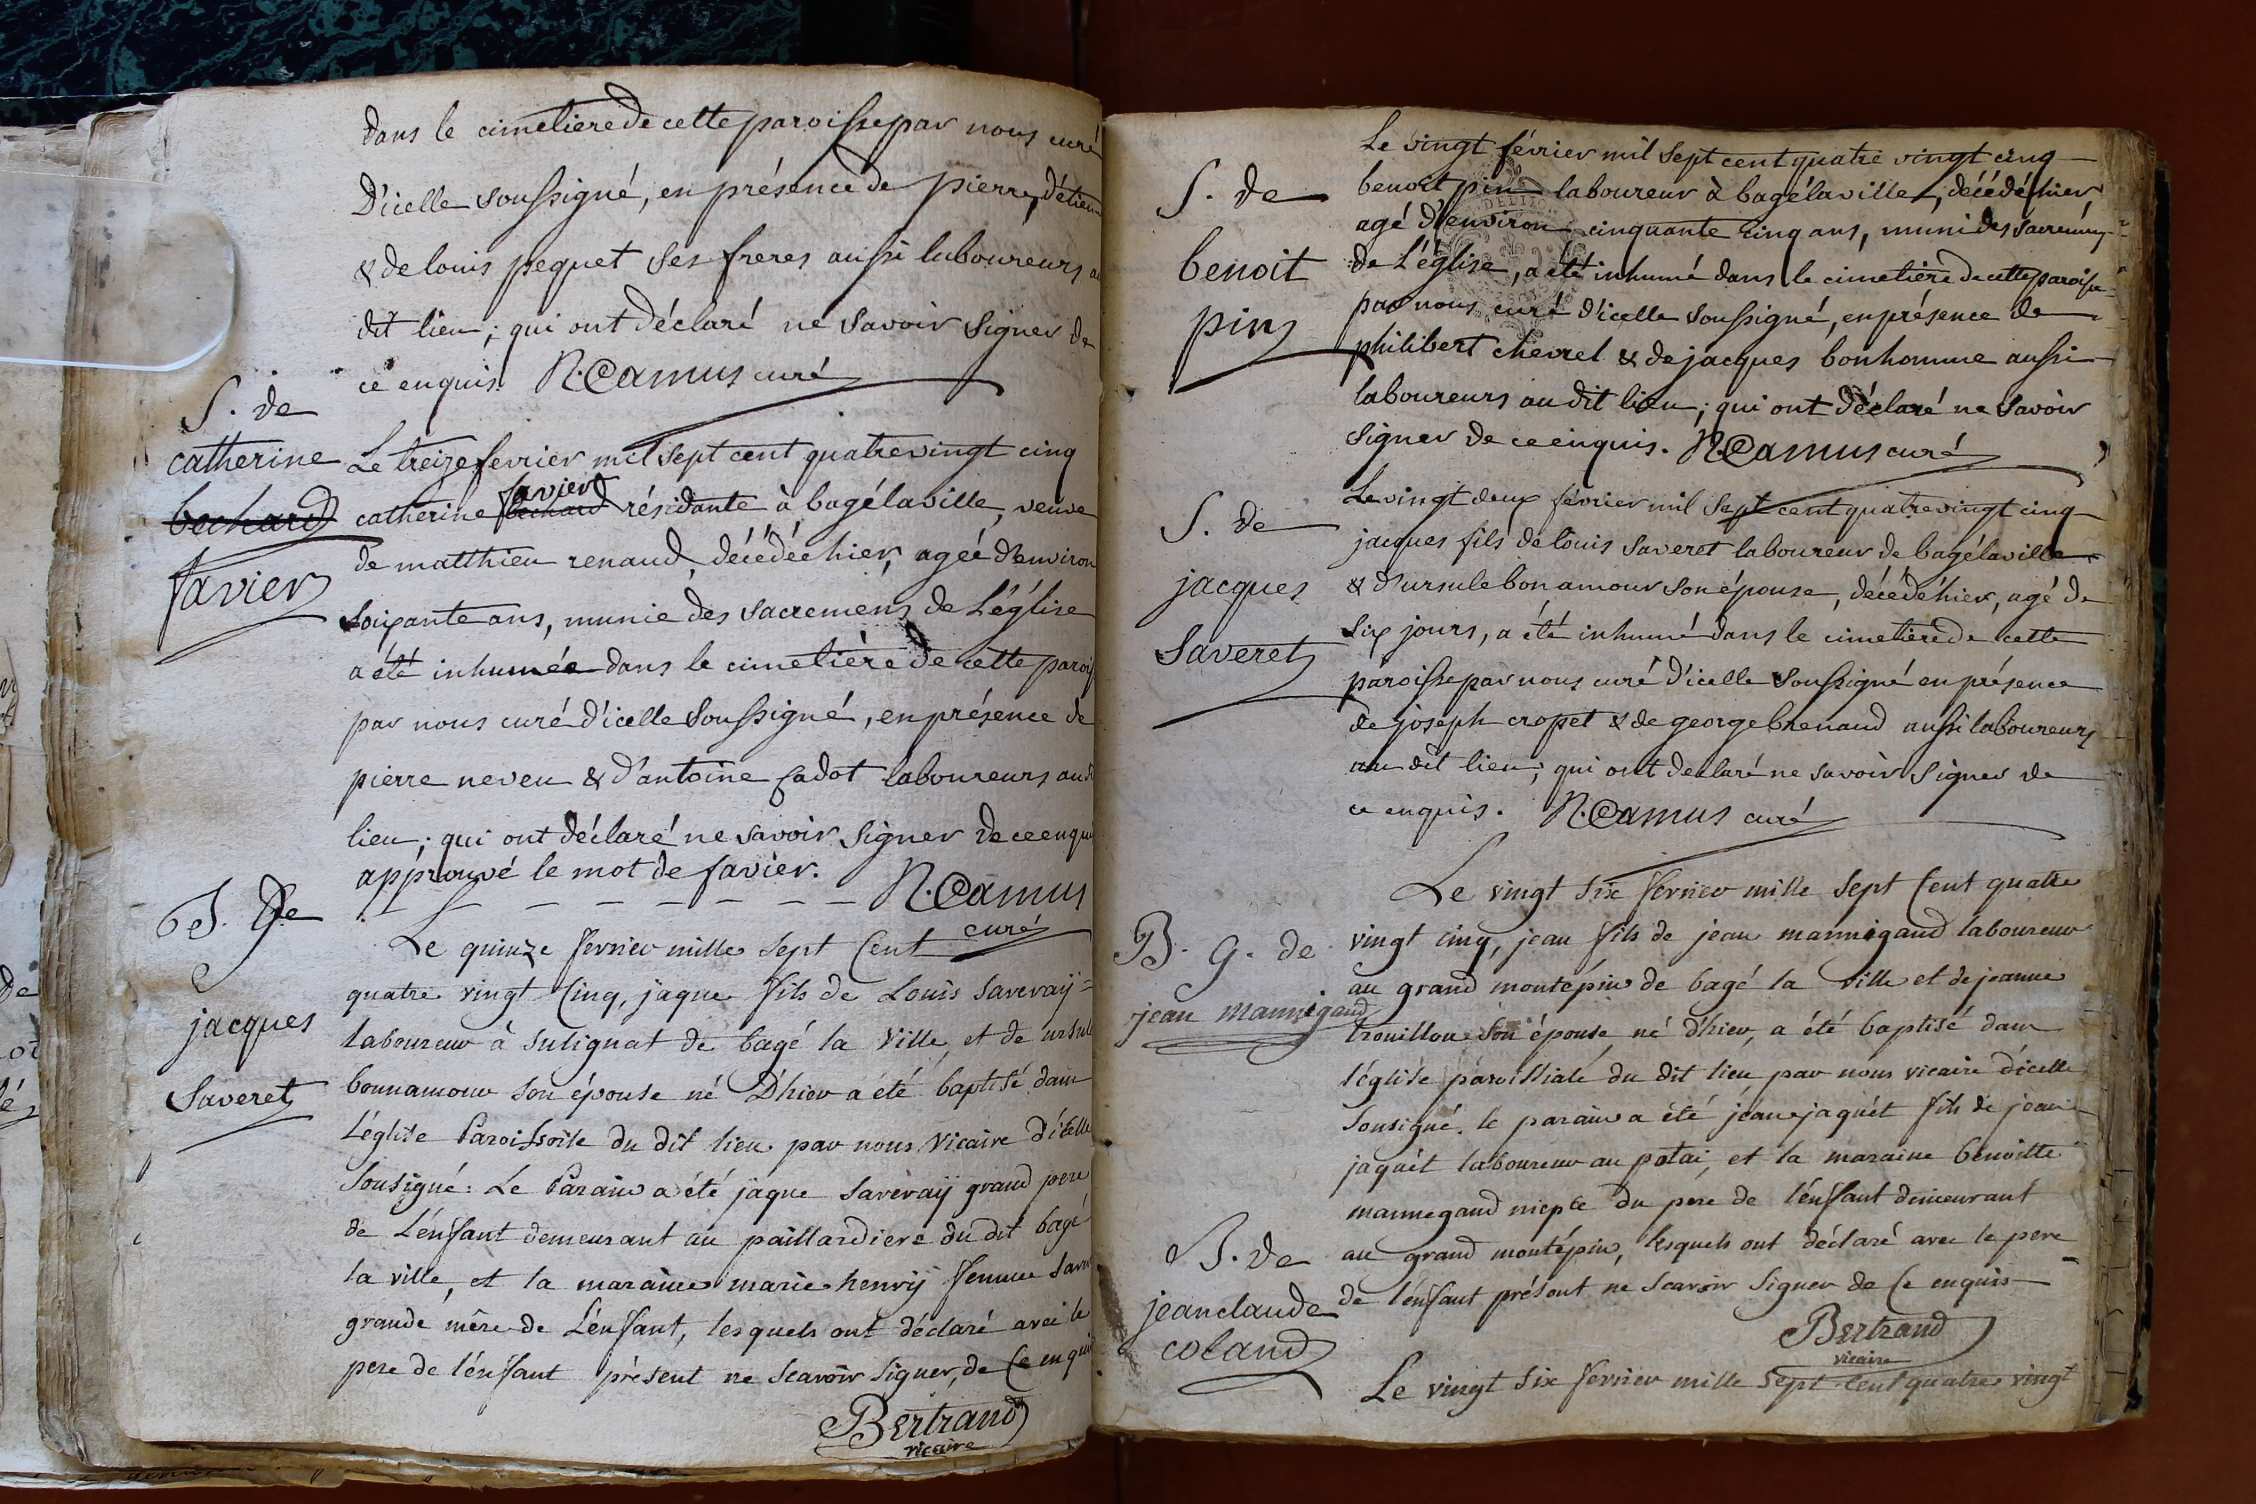 dans le cimetiere de cette paroisse par nous curé
D'icelle soussigné, en présence de pierre, d'étien
& de louis pequet ses freres aussi laboureurs au
dit lieu; qui ont déclaré ne savoir signer de
ce enquis. N. Camus curé
S. de
catherine
bechard
favier
Le treize fevrier mil sept cent quatrevingt cinq
catherine bechard favier résidante à bagélaville, veuve
de matthieu renaud, décédée hier, agée d'environ
soixante ans, munie des sacremens de L'église
a été inhumée dans le cimetière de cette parois
par nous curé d'icelle soussigné, en présence de
pierre neveu & d'antoine cadot laboureurs au d
lieu; qui ont déclaré ne savoir signer de ce enqui
approuvé le mot de favier. N. Camus
curé
B. G. de
jacques
Saveret
Le quinze fevrier mille sept Cent
quatre vingt Cinq, jaque fils de Louis Saveraij
laboureur à Sulignat de bagé la Ville, et de ursul
bonnamour son épouse né D'hier a été baptisé dans
L'église Paroissoile du dit lieu par nous Vicaire d'icelle
Sousigné: Le Parain a été jaque Saveraij grand pere
de L'enfant demeurant au paillardiere du dit bagé
la ville, et la maraine marie henrij femme Saver
grande mère de L'enfant, lesquels ont déclaré avec le
pere de l'enfant présent ne scavoir signer, de Ce enqui
Bertrand
vicaire
S. de
benoit
pin
Le vingt février mil sept cent quatre vingt cinq
benoit pin laboureur à bagélaville, décédé hier,
agé d'environ cinquante cinq ans, muni des sacremens
de L'église, a été inhumé dans le cimetière de cette paroisse
par nous curé d'icelle soussigné, en présence de
philibert chevrel & de jacques bonhomme aussi
laboureurs au dit lieu; qui ont déclaré ne savoir
signer de ce enquis. N. Camus curé
S. de
jacques
Saveret
Le vingt deux février mil sept cent quatrevingt cinq
jacques fils de louis saveret laboureur de bagélaville
& d'ursule bonamour son épouse, décédé hier, agé de
six jours, a été inhumé dans le cimetiere de cette
paroisse par nous curé d'icelle soussigné en présence
de joseph cropet & de george brenaud aussi laboureurs
au dit lieu; qui ont declaré ne savoir signer de
ce enquis. N. Camus curé
B. G. de
jean mannegand
Le vingt six fevrier mille sept Cent quatre
vingt cinq, jean fils de jean mannegand laboureur
au grand montépin de bagé la ville et de jeanne
trouillou son épouse, né d'hier, a été baptisé dans
l'église paroissiale du dit lieu par nous vicaire d'icelle
Sousigné. le parain a été jean jaquét fils de jean
jaquét laboureur au potai, et la maraine benoitte
mannegand niepce du pere de l'enfant demeurant
au grand montépin, lesquels ont déclaré avec le pere
de l'enfant présent ne scavoir signer de Ce enquis
Bertrand
vicaire
B. de
jean claude
coland
Le vingt six fevrier mille sept Cent quatre vingt